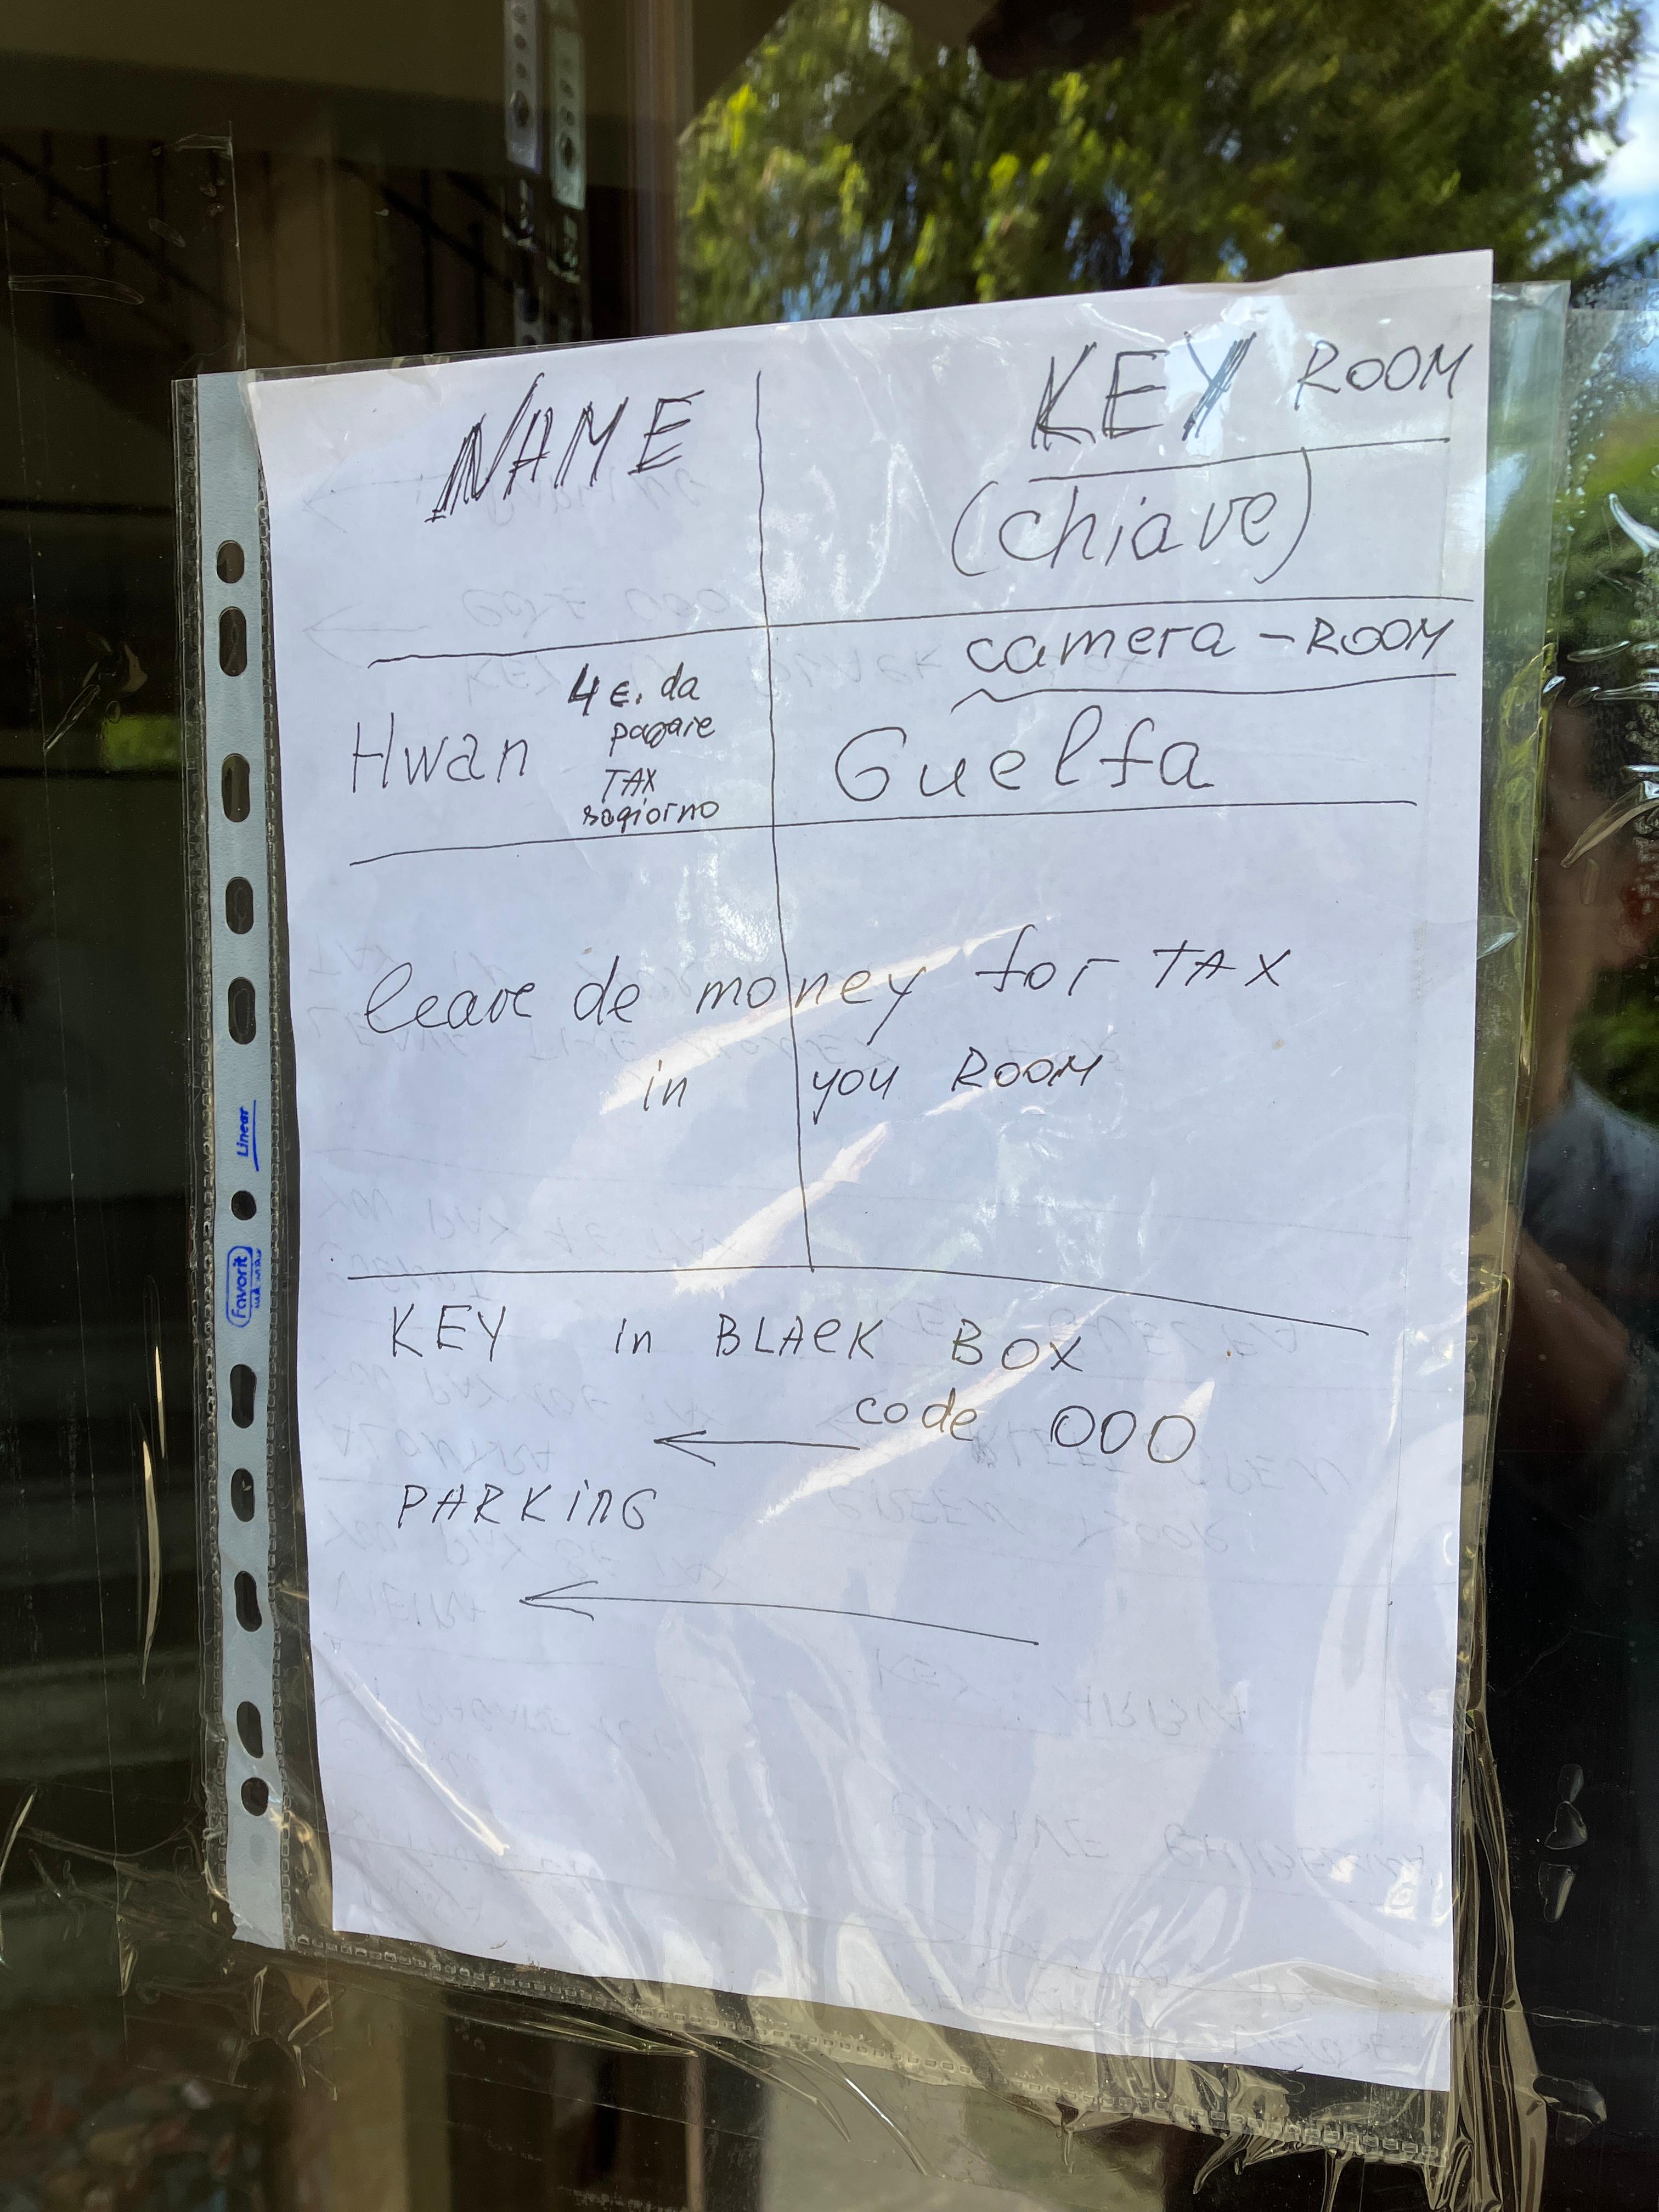 NAME
KEY ROOM
(chiave)
camera - ROOM
Hwan
4 €. da
pagare
TAX
sogiorno
Guelfa
leave de money for TAX
in you ROOM
KEY in BLACK BOX
code 000
PARKING
Linear
Favorit